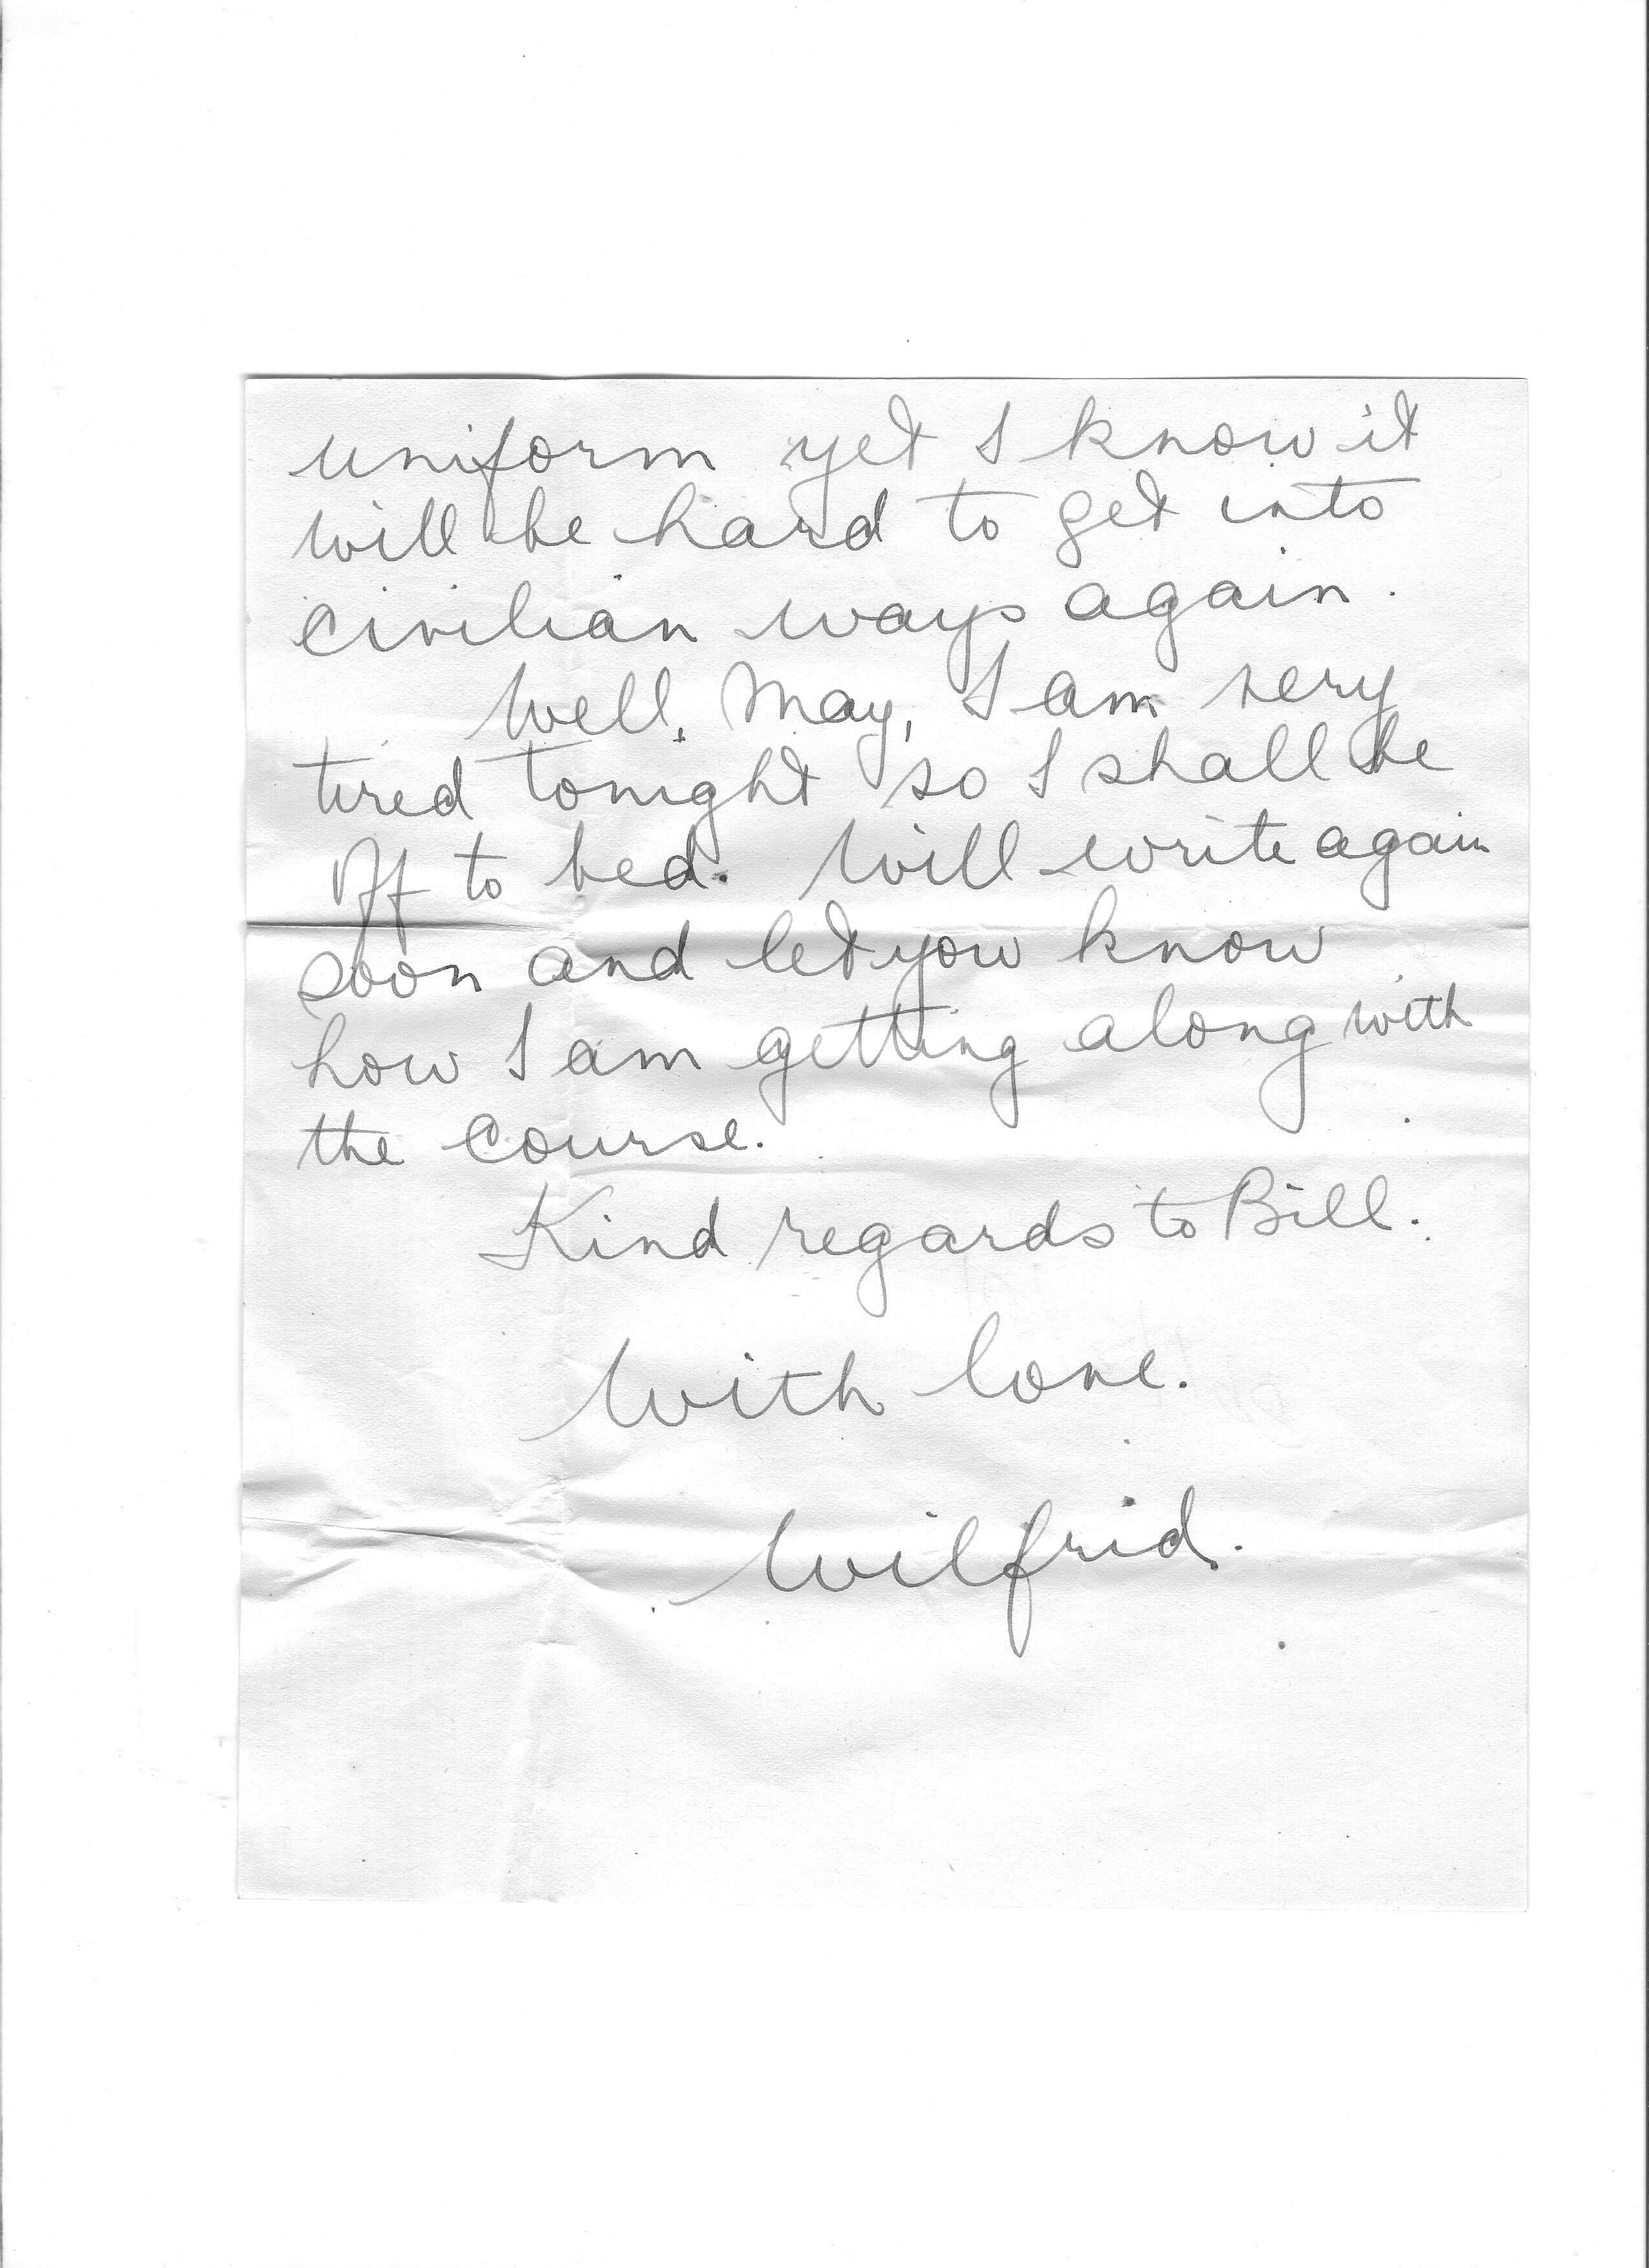 uniform yet I know it
will be hard to get into
civilian ways again.
Well, May, I am very
tired tonight so I shall be
off to bed. Will write again
soon and let you know
how I am getting along with
the course.
Kind regards to Bill.
With love.
Wilfrid.